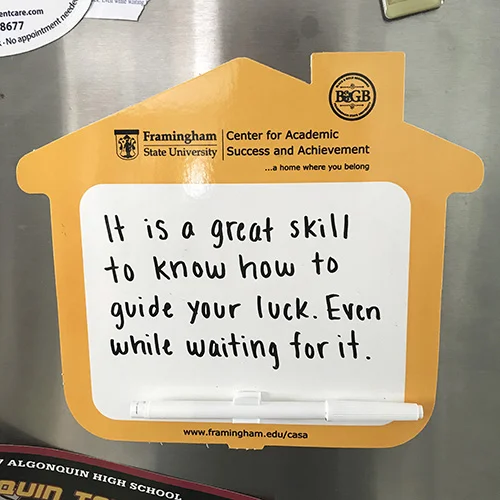 entcare.com
8677
- No appointment neede
Framingham
State University
Center for Academic
Success and Achievement
...a home where you belong
B&GB
It is a great skill
to know how to
guide your luck. Even
while waiting for it.
www.framingham.edu/casa
ALGONQUIN HIGH SCHOOL